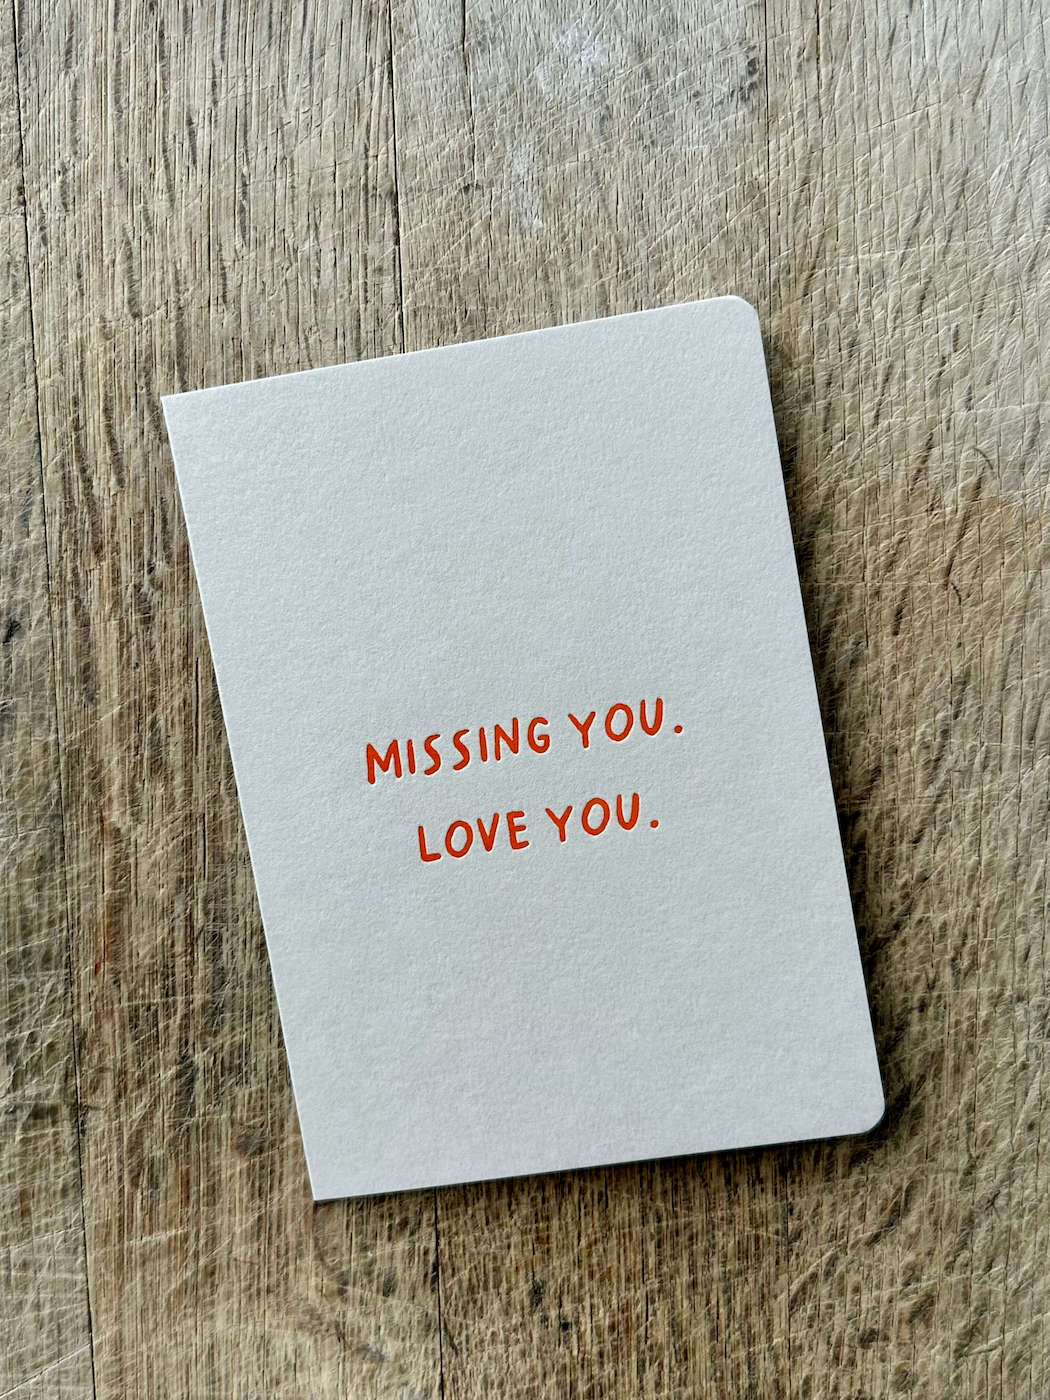 MISSING YOU.
LOVE YOU.